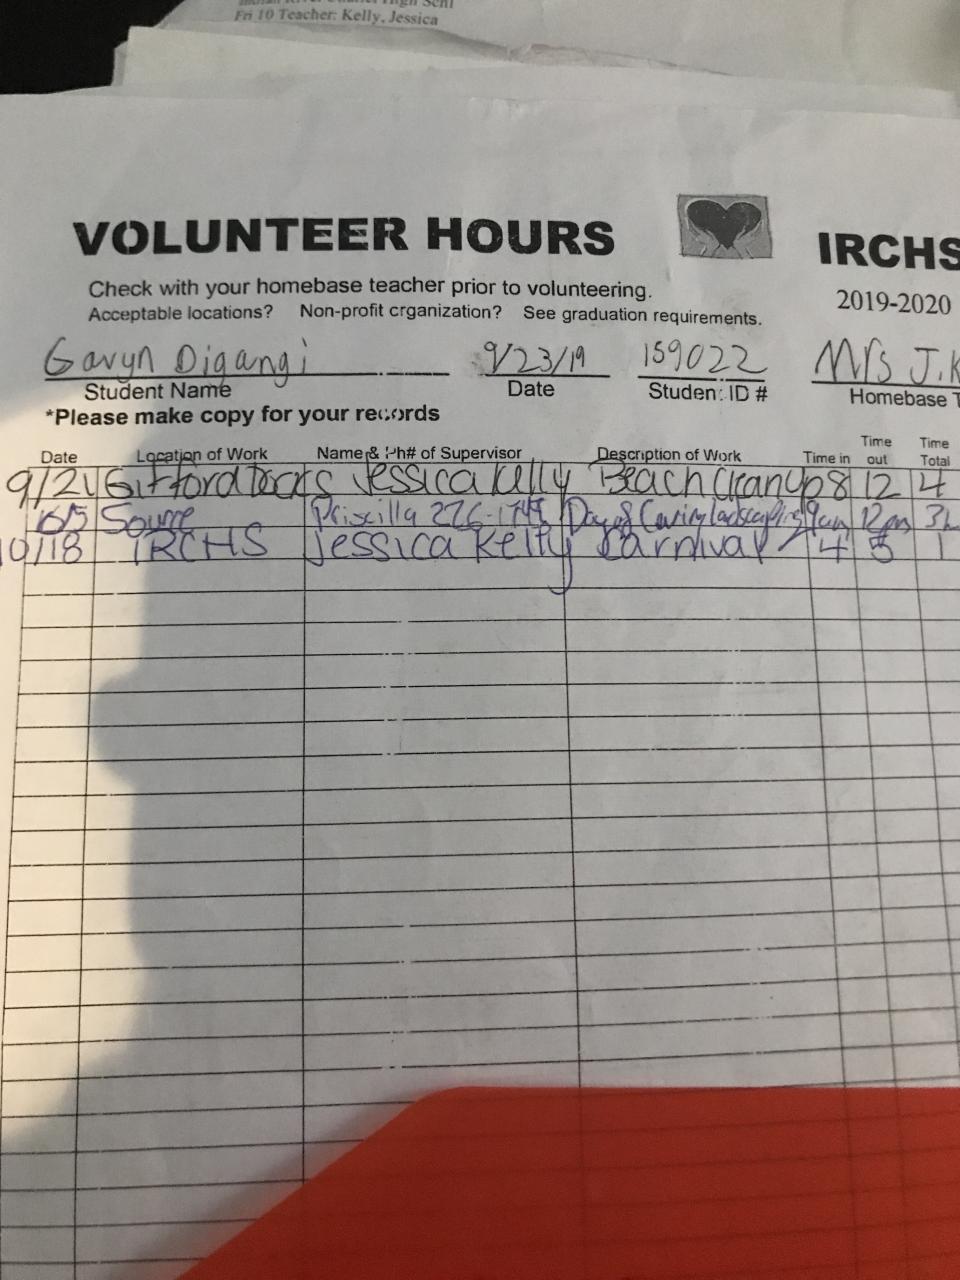 Fri 10 Teacher: Kelly, Jessica
VOLUNTEER HOURS
IRCHS
Check with your homebase teacher prior to volunteering.
2019-2020
Acceptable locations? Non-profit crganization? See graduation requirements.
Gavyn Digangi 9/23/19 159022 Mrs J.K
Student Name Date Student ID # Homebase T
*Please make copy for your records
Date Location of Work Name & Ph# of Supervisor Description of Work Time in Time out Time Total
9/21 Gifford Docks Jessica Kelly Beach Cleanup 8 12 4
10/5 Source Priscilla Day of Caring landscaping 9am 12pm 3h
10/18 IRCHS Jessica Kelly Carnival 4 5 1